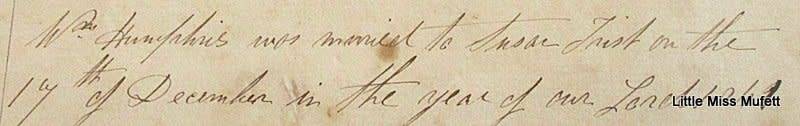 Wm Humphris was married to Susan Trist on the
17th of December in the year of our Lord
Little Miss Mufett